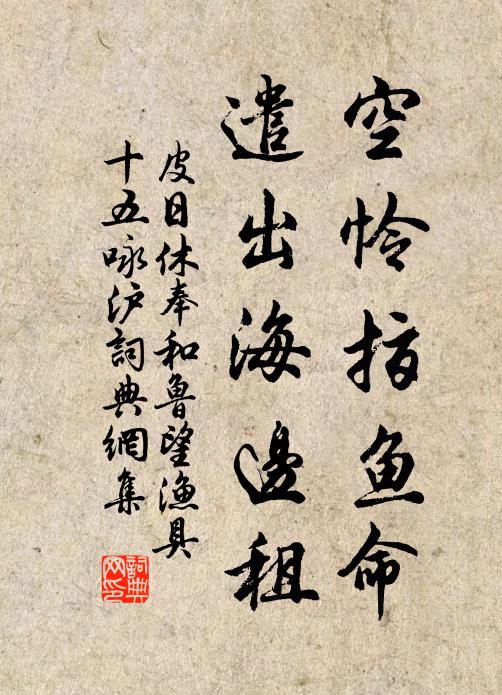 空怜指鱼命
遣出海邊租
皮日休奉和魯望漁具
十五咏沪詞典網集
詞典网印